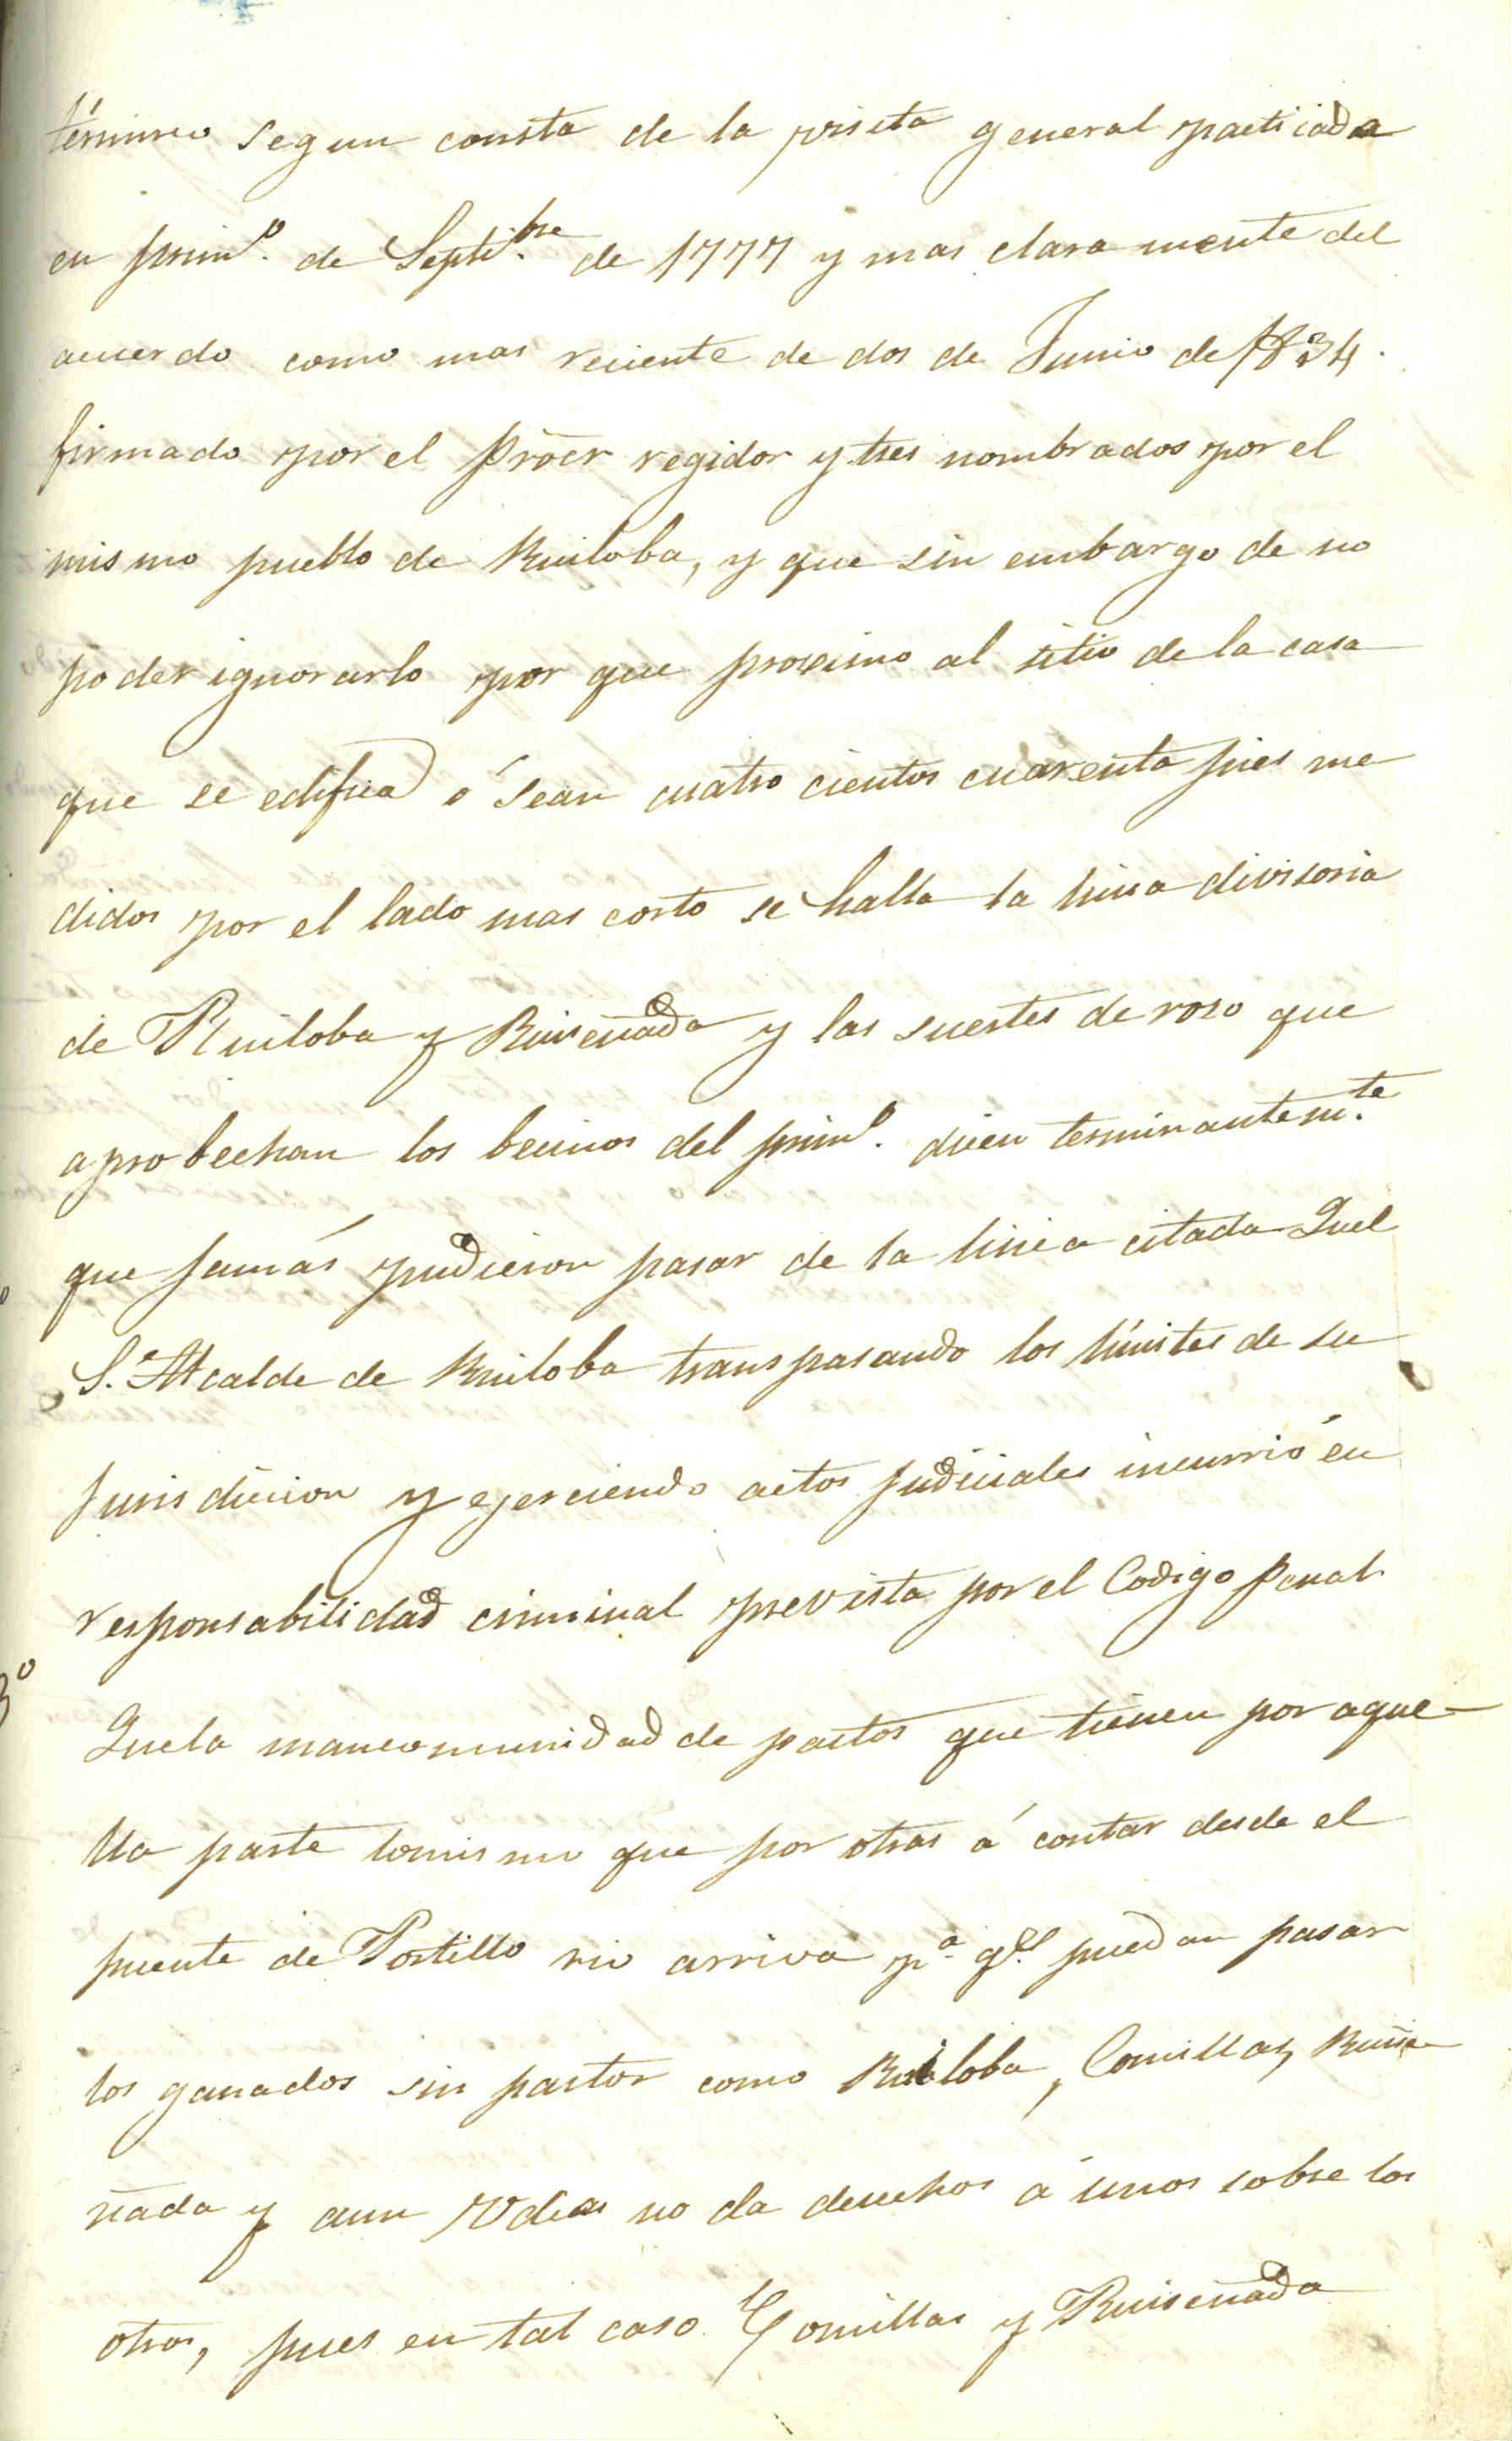 término segun consta de la visita general practicada
en prim.º de Septi.bre de 1777 y mas claramente del
acuerdo como mas reciente de dos de Junio de 1834.
firmado por el Prócr regidor y tres nombrados por el
mismo pueblo de Ruiloba, y que sin embargo de no
poder ignorarlo por que proximo al sitio de la casa
que se edifica ó sean cuatro cientos cuarenta pies me
didos por el lado mas corto se halla la linea divisoria
de Ruiloba y Ruiseñada y las suertes de roso que
aprobechan los becinos del prim.º dicen terminantem.te
que jamás pudieron pasar de la linea citada Quel
S.r Alcalde de Ruiloba transpasando los límites de su
jurisdicion y ejerciendo actos judiciales incurrió en
responsabilidad criminal prevista por el Codigo Penal
3º
Quela mancomunidad de pastos que tienen por aque
lla parte lomismo que por otras á contar desde el
puente de Portillo rio arriva p.ª q.e puedan pasar
los ganados sin pastor como Ruiloba, Comillas, Ruise
ñada y aun Udias no da derechos á unos sobre los
otros, pues en tal caso Comillas y Ruiseñada